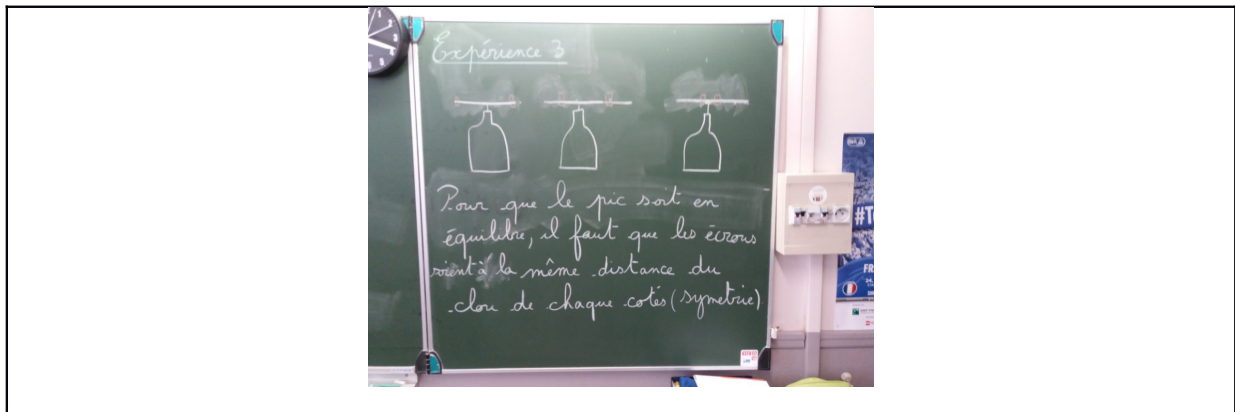 Expérience 3
Pour que le pic soit en
équilibre, il faut que les écrous
soient à la même distance du
clou de chaque cotés (symetrie)
#T
FR